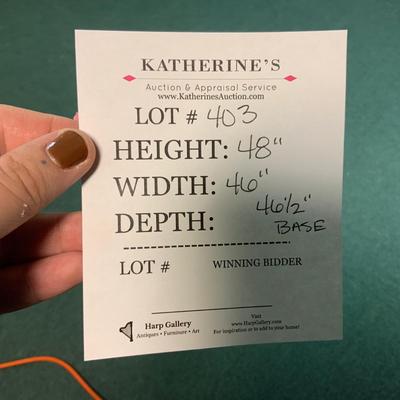 KATHERINE'S
Auction & Appraisal Service
www.KatherinesAuction.com
LOT # 403
HEIGHT: 48"
WIDTH: 46"
46 1/2"
DEPTH: BASE
LOT # WINNING BIDDER
Visit
Harp Gallery www.HarpGallery.com
Antiques • Furniture • Art For inspiration or to add to your home!